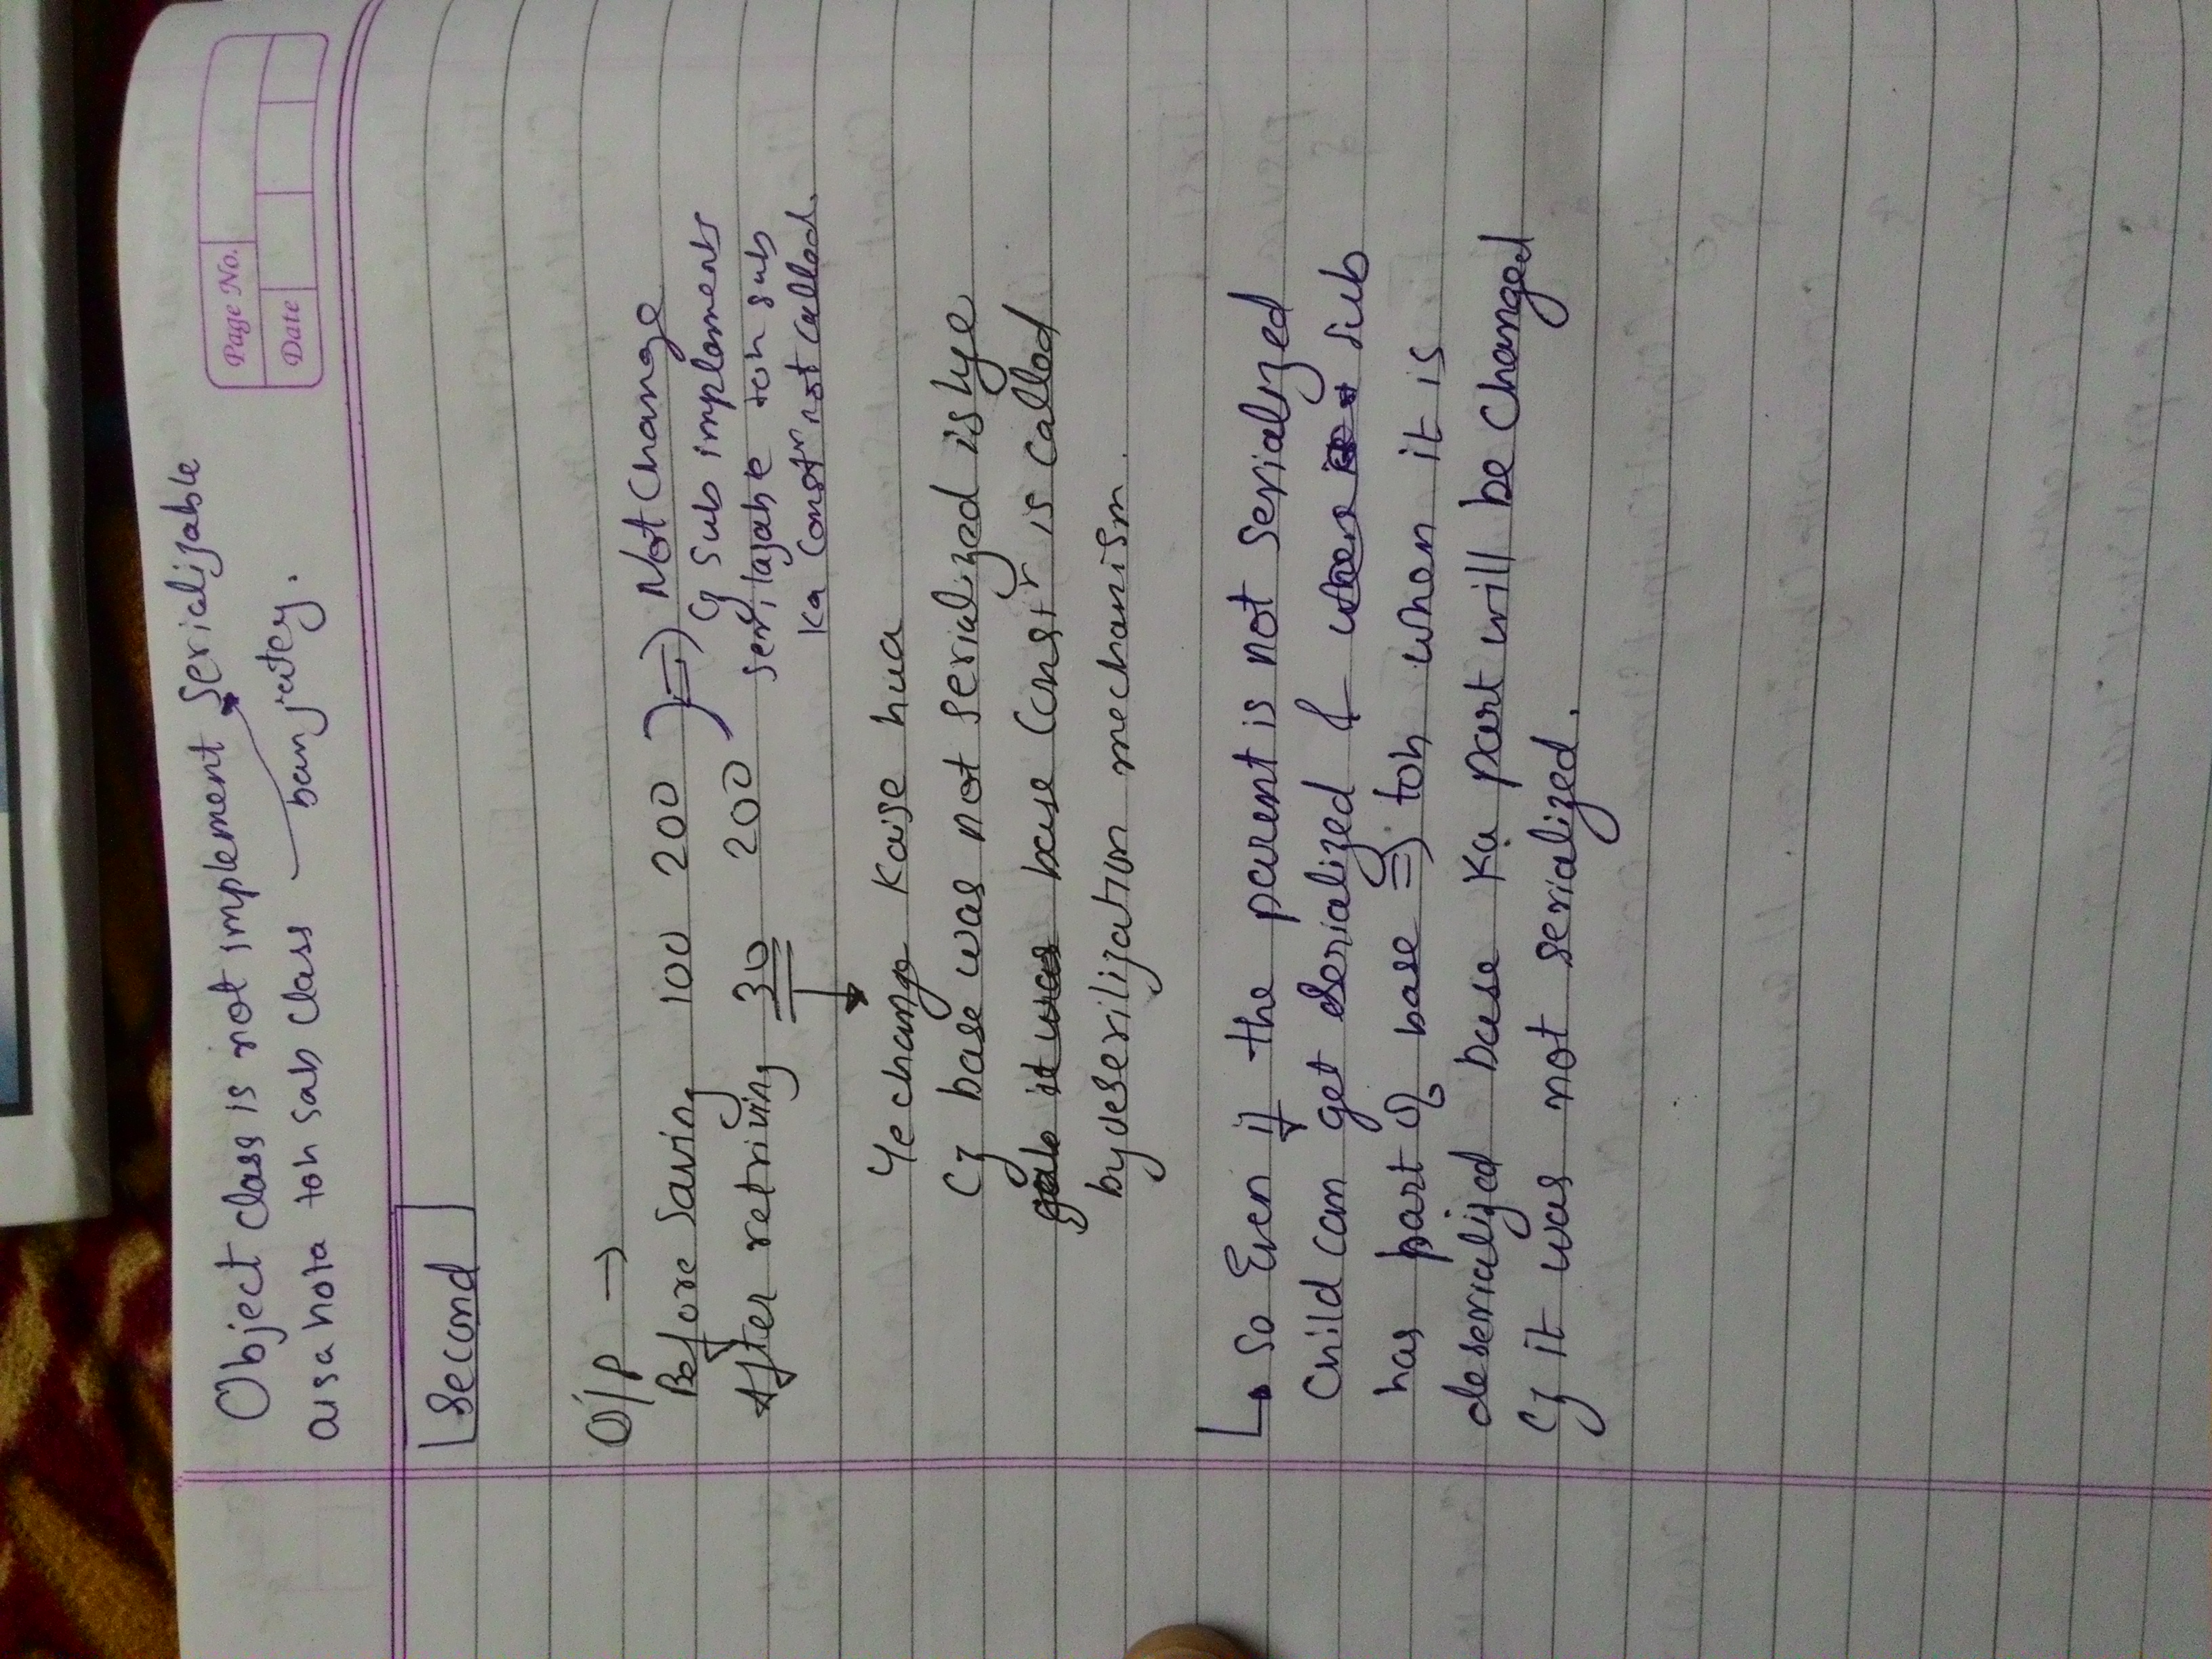 Object class is not implement Serializable
aisa hota toh sab class banjatey.
Page No.
Date
Second
O/P →
Before Saving 100 200 ⇒ Not Change
Cz Sub implements
After retriving 30 200
serilazable toh sub
Ka Constr not called.
Ye change Kaise hua
Cz base was not serialized islye
it was base Constr is called
by deserilization mechanism.
So Even if the parent is not Serialized
Child can get dserialized & Sub
has part of base ⇒ toh when it is
deserialized base Ka part will be Changed
Cz it was not serialized.